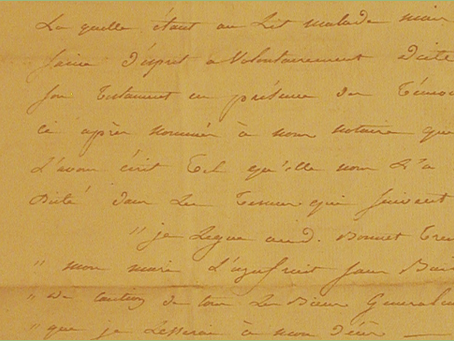 La quelle étant au Lit malade mais
saine d'esprit a volontairement dicté
son Testament en présence des Témoins
ci après nommés à nous notaire qui
L'avons écrit Tel qu'elle nous L'a
Dicté dans Les Termes qui suivent
" je Legue aud. Bonnet
" mon mari L'usufruit sans
" de caution de tous Les Biens
" que je Lesserai à mon décès